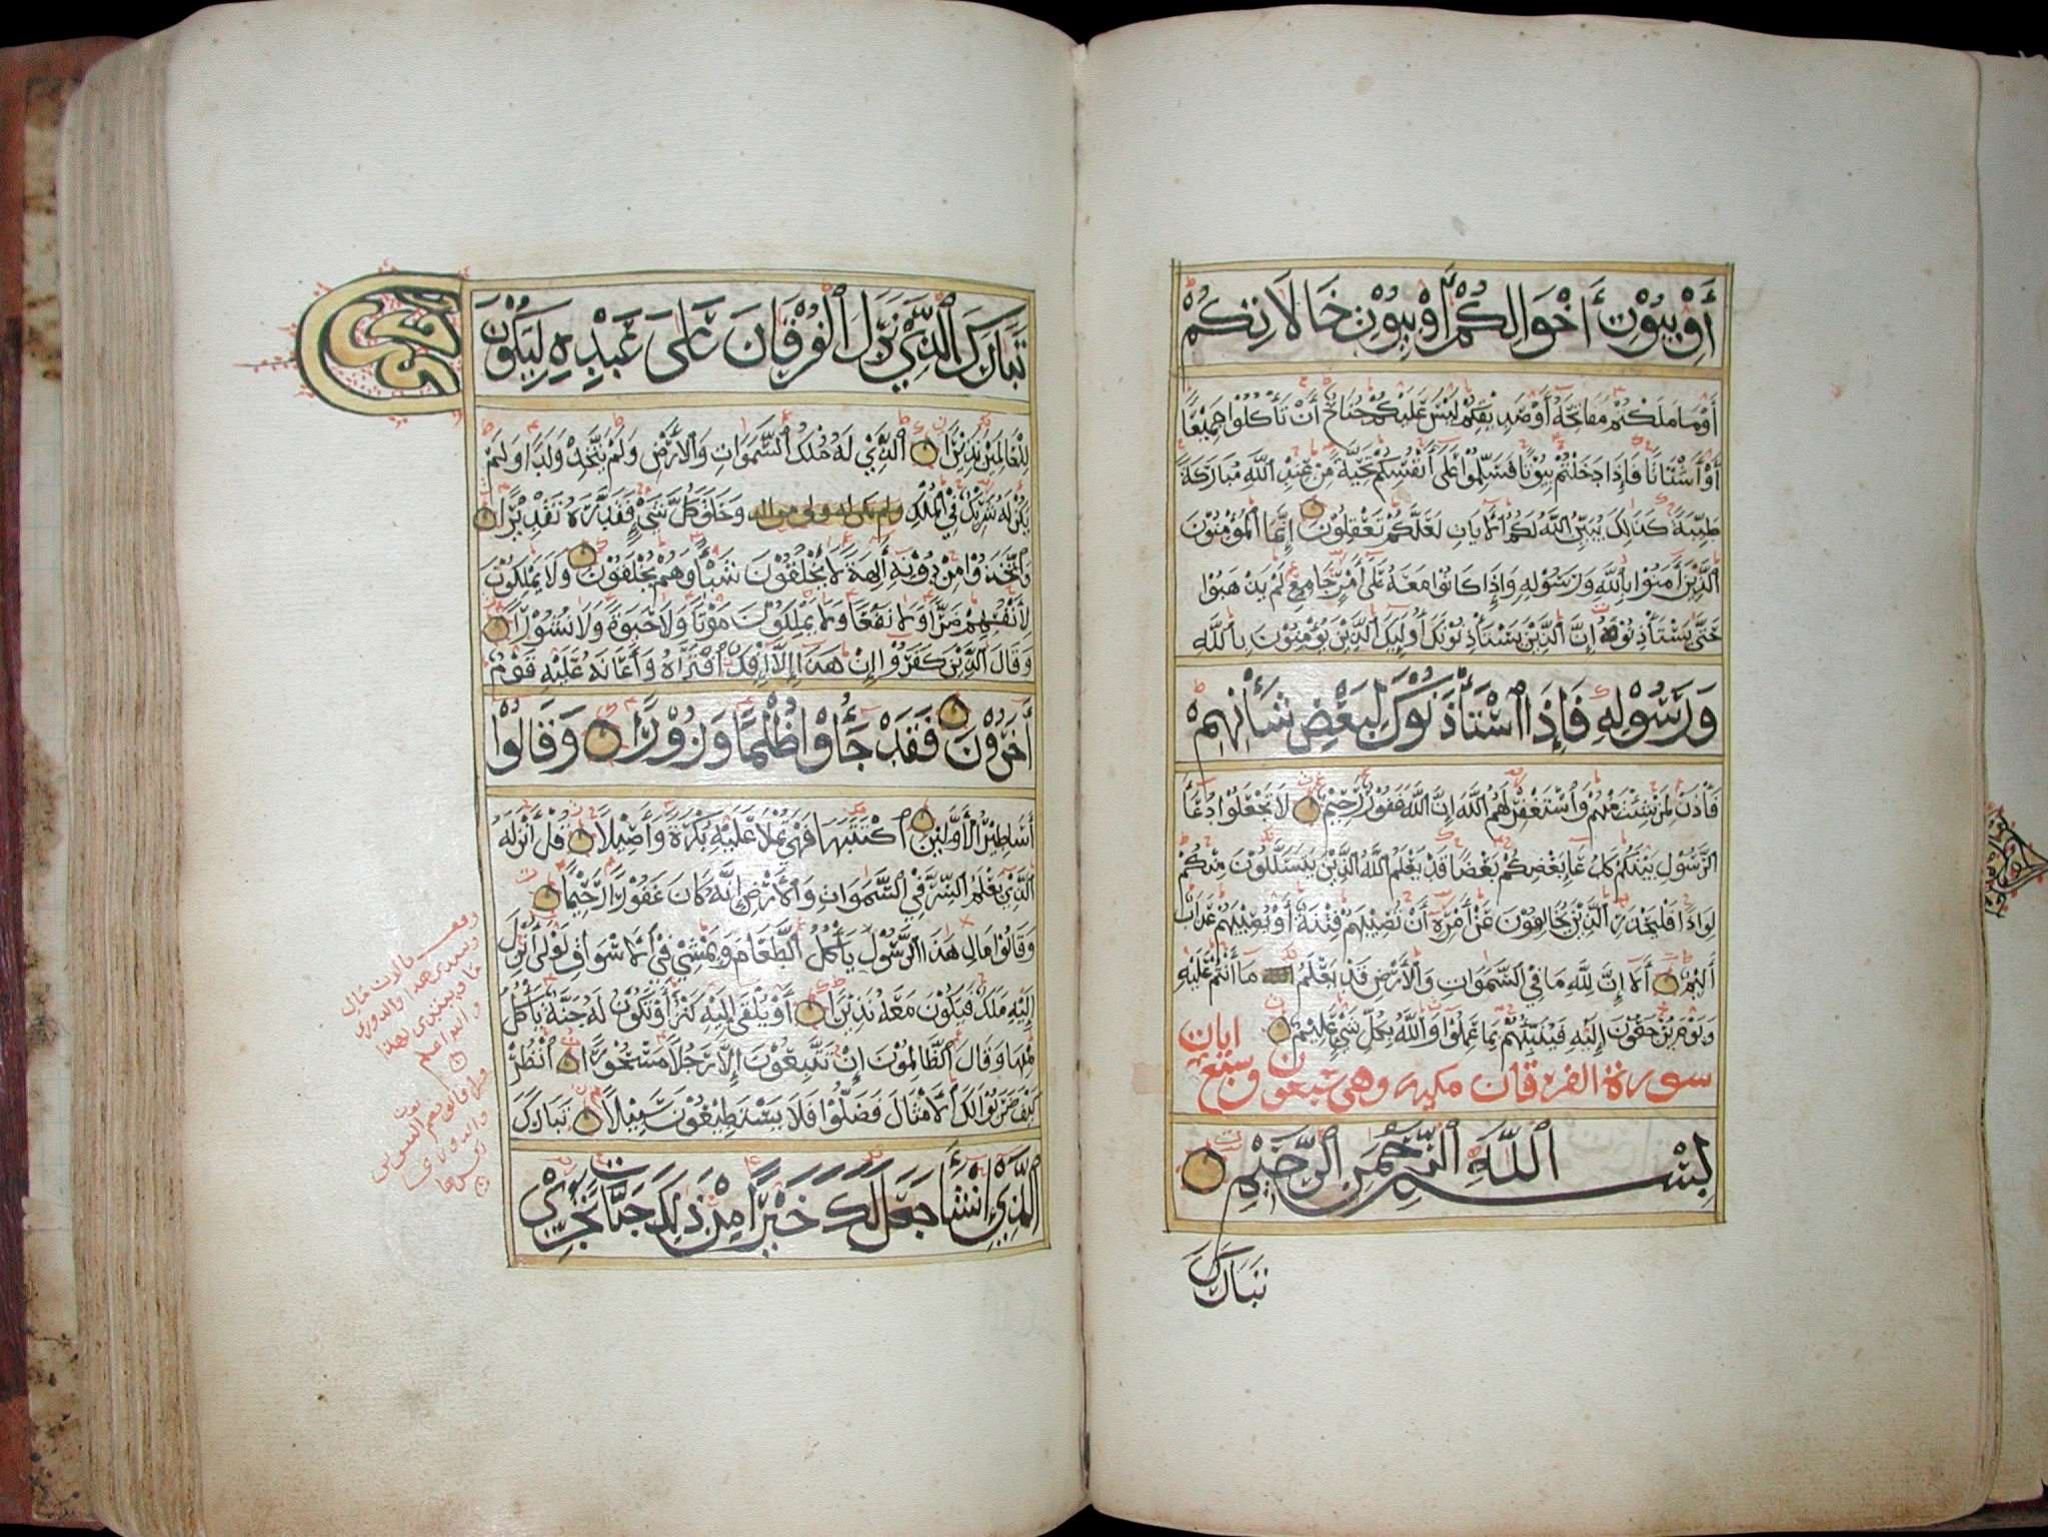 أَوْ بُيُوْتِ أَخْوَالِكُمْ أَوْ بُيُوْتِ خَالَاتِكُمْ
أَوْمَا مَلَكْتُمْ مَفَاتِحَهُ أَوْصَدِيْقِكُمْ لَيْسَ عَلَيْكُمْ جُنَاحٌ أَنْ تَأْكُلُوْا جَمِيْعًا
أَوْ أَشْتَاتًا فَإِذَا دَخَلْتُمْ بُيُوْتًا فَسَلِّمُوْا عَلَى أَنْفُسِكُمْ تَحِيَّةً مِنْ عِنْدِ اللَّهِ مُبَارَكَةً
طَيِّبَةً كَذَالِكَ يُبَيِّنُ اللَّهُ لَكُمُ الْأَيَاتِ لَعَلَّكُمْ تَعْقِلُوْنَ إِنَّمَا الْمُؤْمِنُوْنَ
الَّذِيْنَ أَمَنُوْا بِاللَّهِ وَرَسُوْلِهِ وَإِذَا كَانُوْا مَعَهُ عَلَى أَمْرٍ جَامِعٍ لَمْ يَذْهَبُوْا
حَتَّى يَسْتَأْذِنُوْهُ إِنَّ الَّذِيْنَ يَسْتَأْذِنُوْنَكَ أُولَئِكَ الَّذِيْنَ يُؤْمِنُوْنَ بِاللَّهِ
وَرَسُوْلِهِ فَإِذَا اسْتَأْذَنُوْكَ لِبَعْضِ شَأْنِهِمْ
فَأْذَنْ لِمَنْ شِئْتَ مِنْهُمْ وَاسْتَغْفِرْ لَهُمُ اللَّهَ إِنَّ اللَّهَ غَفُوْرٌ رَّحِيْمٌ لَا تَجْعَلُوْا دُعَاءَ
الرَّسُوْلِ بَيْنَكُمْ كَدُعَاءِ بَعْضِكُمْ بَعْضًا قَدْ يَعْلَمُ اللَّهُ الَّذِيْنَ يَتَسَلَّلُوْنَ مِنْكُمْ
لِوَاذًا فَلْيَحْذَرِ الَّذِيْنَ يُخَالِفُوْنَ عَنْ أَمْرِهِ أَنْ تُصِيْبَهُمْ فِتْنَةٌ أَوْ يُصِيْبَهُمْ عَذَابٌ
أَلِيْمٌ أَلَا إِنَّ لِلَّهِ مَا فِي السَّمَوَاتِ وَالْأَرْضِ قَدْ يَعْلَمُ مَا أَنْتُمْ عَلَيْهِ
وَيَوْمَ يُرْجَعُوْنَ إِلَيْهِ فَيُنَبِّئُهُمْ بِمَا عَمِلُوْا وَاللَّهُ بِكُلِّ شَيْءٍ عَلِيْمٌ
سورة الفرقان مكيه وهى سبعون وسبع ايات
بِسْمِ اللَّهِ الرَّحْمَنِ الرَّحِيْمِ
تَبَارَكَ
تَبَارَكَ الَّذِيْ نَزَّلَ الْفُرْقَانَ عَلَى عَبْدِهِ لِيَكُوْنَ
لِلْعَالَمِيْنَ نَذِيْرًا الَّذِيْ لَهُ مُلْكُ السَّمَوَاتِ وَالْأَرْضِ وَلَمْ يَتَّخِذْ وَلَدًا وَلَمْ
يَكُنْ لَهُ شَرِيْكٌ فِي الْمُلْكِ ولم يكن له ولي من الذل وَخَلَقَ كُلَّ شَيْءٍ فَقَدَّرَهُ تَقْدِيْرًا
وَاتَّخَذُوْا مِنْ دُوْنِهِ أَلِهَةً لَا يَخْلُقُوْنَ شَيْئًا وَهُمْ يُخْلَقُوْنَ وَلَا يَمْلِكُوْنَ
لِأَنْفُسِهِمْ ضَرًّا وَلَا نَفْعًا وَلَا يَمْلِكُوْنَ مَوْتًا وَلَا حَيَوةً وَلَا نُشُوْرًا
وَقَالَ الَّذِيْنَ كَفَرُوْا إِنْ هَذَا إِلَّا إِفْكٌ افْتَرَاهُ وَأَعَانَهُ عَلَيْهِ قَوْمٌ
أَخَرُوْنَ فَقَدْ جَاؤُوْا ظُلْمًا وَزُوْرًا وَقَالُوْا
أَسَاطِيْرُ الْأَوَّلِيْنَ اكْتَتَبَهَا فَهِيَ تُمْلَا عَلَيْهِ بُكْرَةً وَأَصِيْلًا قُلْ أَنْزَلَهُ
الَّذِيْ يَعْلَمُ السِّرَّ فِي السَّمَوَاتِ وَالْأَرْضِ إِنَّهُ كَانَ غَفُوْرًا رَّحِيْمًا
وَقَالُوْا مَالِ هَذَا الرَّسُوْلِ يَأْكُلُ الطَّعَامَ وَيَمْشِيْ فِي الْأَسْوَاقِ لَوْلَا أُنْزِلَ
إِلَيْهِ مَلَكٌ فَيَكُوْنَ مَعَهُ نَذِيْرًا أَوْ يُلْقَى إِلَيْهِ كَنْزٌ أَوْ تَكُوْنُ لَهُ جَنَّةٌ يَأْكُلُ
مِنْهَا وَقَالَ الظَّالِمُوْنَ إِنْ تَتَّبِعُوْنَ إِلَّا رَجُلًا مَسْحُوْرًا انْظُرْ
كَيْفَ ضَرَبُوْا لَكَ الْأَمْثَالَ فَضَلُّوْا فَلَا يَسْتَطِيْعُوْنَ سَبِيْلًا تَبَارَكَ
الَّذِيْ إِنْ شَاءَ جَعَلَ لَكَ خَيْرًا مِنْ ذَلِكَ جَنَّاتٍ تَجْرِيْ